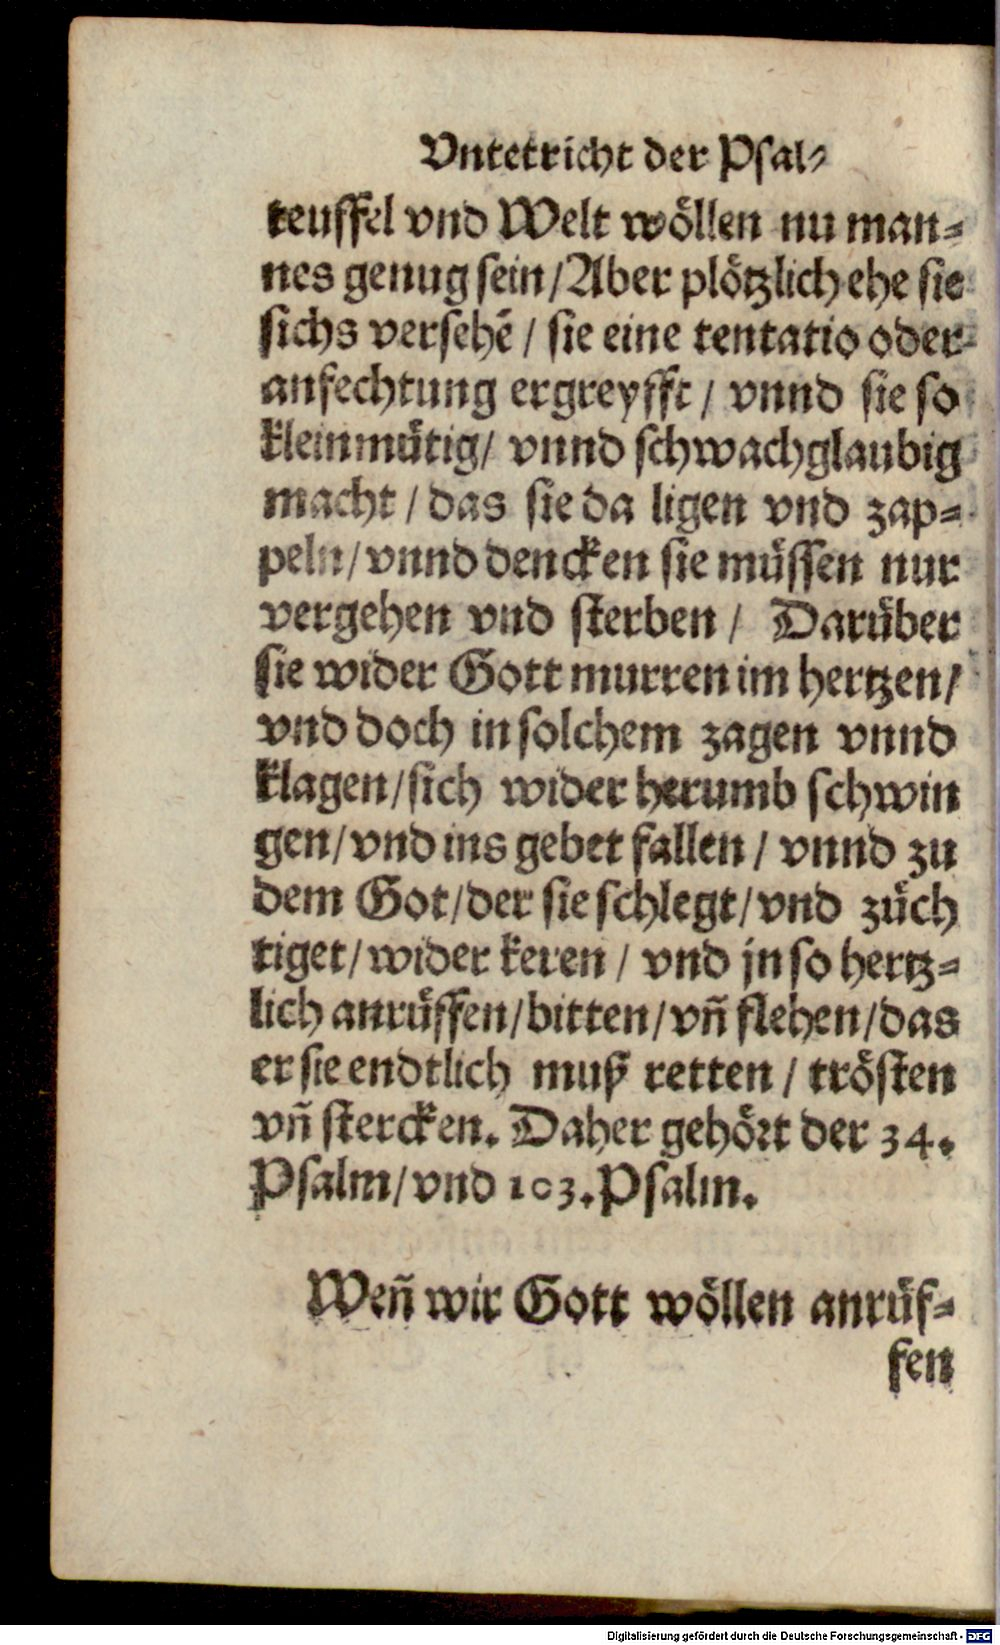 Vntetricht der Psal⸗
teuffel vnd Welt wöllen nu man⸗
nes genug sein/Aber plötzlich ehe sie
sichs versehē / sie eine tentatio oder
anfechtung ergreyfft / vnnd sie so
kleinmütig/ vnnd schwachglaubig
macht / das sie da ligen vnd zap⸗
peln/vnnd dencken sie müssen nur
vergehen vnd sterben / Darüber
sie wider Gott murren im hertzen/
vnd doch in solchem zagen vnnd
klagen/sich wider herumb schwin
gen/vnd ins gebet fallen / vnnd zu
dem Got/der sie schlegt/vnd züch
tiget/wider keren / vnd jn so hertz⸗
lich anrüffen/bitten/vñ flehen/das
er sie endtlich muß retten / trösten
vñ stercken. Daher gehört der 34.
Psalm/vnd 103.Psalm.
Weñ wir Gott wöllen anrüf⸗
fen
Digitalisierung gefördert durch die Deutsche Forschungsgemeinschaft - DFG